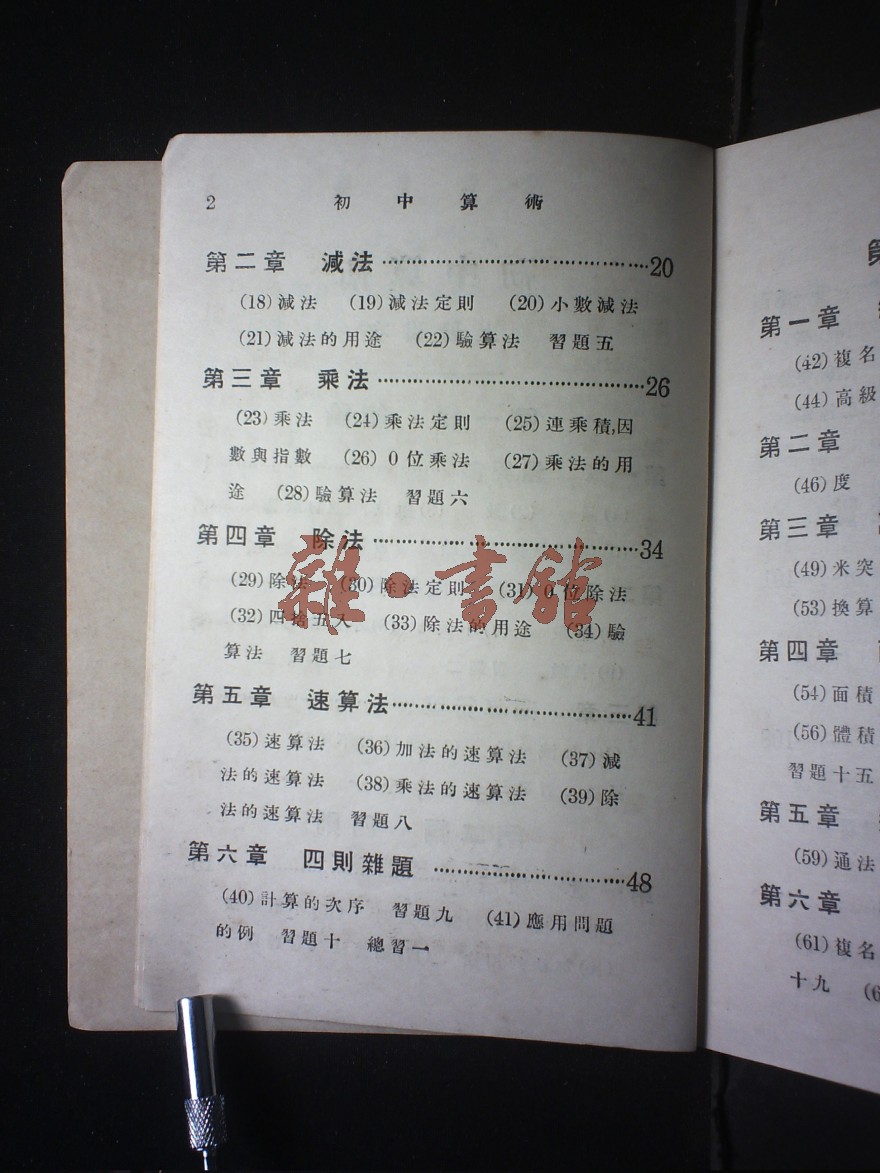 2 初中算術
第二章 減法……20
(18)減法 (19)減法定則 (20)小數減法
(21)減法的用途 (22)驗算法 習題五
第三章 乘法……26
(23)乘法 (24)乘法定則 (25)連乘積,因
數與指數 (26)0位乘法 (27)乘法的用
途 (28)驗算法 習題六
第四章 除法……34
(29)除法 (30)除法定則 (31)0位除法
(32)四捨五入 (33)除法的用途 (34)驗
算法 習題七
第五章 速算法……41
(35)速算法 (36)加法的速算法 (37)減
法的速算法 (38)乘法的速算法 (39)除
法的速算法 習題八
第六章 四則雜題……48
(40)計算的次序 習題九 (41)應用問題
的例 習題十 總習一
雜·書館
第一章
(42)複名
(44)高級
第二章
(46)度
第三章
(49)米突
(53)換算
第四章
(54)面積
(56)體積
習題十五
第五章
(59)通法
第六章
(61)複名
十九